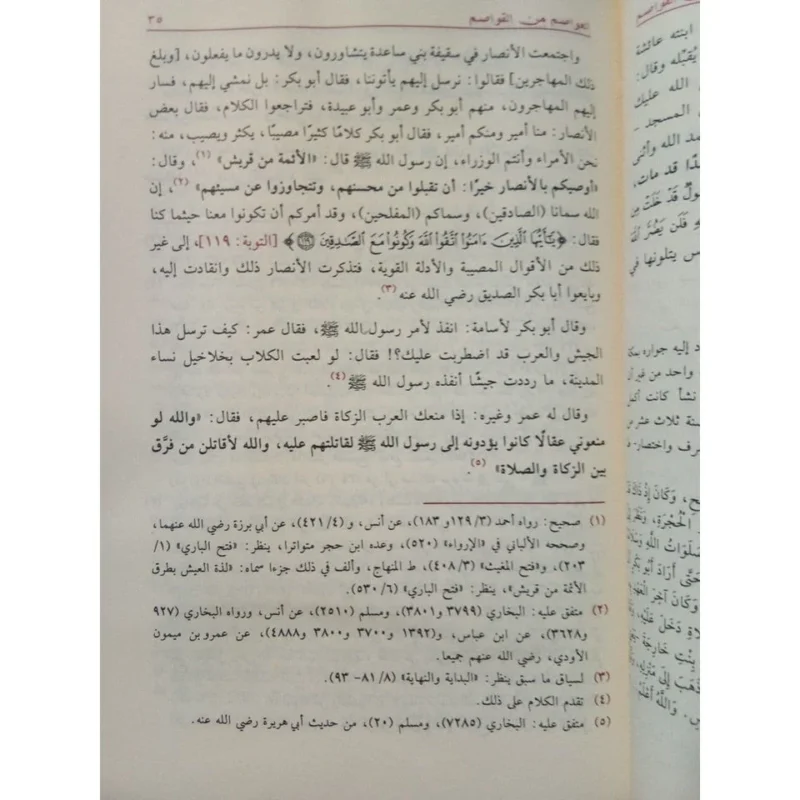 العواصم من القواصم
٣٥
واجتمعت الأنصار في سقيفة بني ساعدة يتشاورون، ولا يدرون ما يفعلون، [وبلغ
ذلك المهاجرين] فقالوا: نرسل إليهم يأتوننا، فقال أبو بكر: بل نمشي إليهم، فسار
إليهم المهاجرون، منهم أبو بكر وعمر وأبو عبيدة، فتراجعوا الكلام، فقال بعض
الأنصار: منا أمير ومنكم أمير، فقال أبو بكر كلامًا كثيرًا مصيبًا، يكثر ويصيب، منه:
نحن الأمراء وأنتم الوزراء، إن رسول الله ﷺ قال: «الأئمة من قريش» (١)، وقال:
«أوصيكم بالأنصار خيرًا: أن تقبلوا من محسنهم، وتتجاوزوا عن مسيئهم» (٢)، إن
الله سمانا (الصادقين)، وسماكم (المفلحين)، وقد أمركم أن تكونوا معنا حيثما كنا
فقال: ﴿يَٰٓأَيُّهَا ٱلَّذِينَ ءَامَنُوا۟ ٱتَّقُوا۟ ٱللَّهَ وَكُونُوا۟ مَعَ ٱلصَّٰدِقِينَ ١١٩﴾ [التوبة: ١١٩]، إلى غير
ذلك من الأقوال المصيبة والأدلة القوية، فتذكرت الأنصار ذلك وانقادت إليه،
وبايعوا أبا بكر الصديق رضي الله عنه (٣).
وقال أبو بكر لأسامة: انفذ لأمر رسول الله ﷺ، فقال عمر: كيف ترسل هذا
الجيش والعرب قد اضطربت عليك؟! فقال: لو لعبت الكلاب بخلاخيل نساء
المدينة، ما رددت جيشًا أنفذه رسول الله ﷺ (٤).
وقال له عمر وغيره: إذا منعك العرب الزكاة فاصبر عليهم، فقال: «والله لو
منعوني عقالًا كانوا يؤدونه إلى رسول الله ﷺ لقاتلتهم عليه، والله لأقاتلن من فرَّق
بين الزكاة والصلاة» (٥).
(١) صحيح: رواه أحمد (٣/ ١٢٩ و ١٨٣)، عن أنس، و (٤/ ٤٢١)، عن أبي برزة رضي الله عنهما،
وصححه الألباني في «الإرواء» (٥٢٠)، وعده ابن حجر متواترا، ينظر: «فتح الباري» (١/
٢٠٣)، و«فتح المغيث» (٣/ ٤٠٨)، ط المنهاج، وألف في ذلك جزءا سماه: «لذة العيش بطرق
الأئمة من قريش»، ينظر: «فتح الباري» (٦/ ٥٣٠).
(٢) متفق عليه: البخاري (٣٧٩٩ و٣٨٠١)، ومسلم (٢٥١٠)، عن أنس، ورواه البخاري (٩٢٧
و٣٦٢٨)، عن ابن عباس، و(١٣٩٢ و٣٧٠٠ و٣٨٠٠ و٤٨٨٨)، عن عمرو بن ميمون
الأودي، رضي الله عنهم جميعا.
(٣) لسياق ما سبق ينظر: «البداية والنهاية» (٨/ ٨١- ٩٣).
(٤) تقدم الكلام على ذلك.
(٥) متفق عليه: البخاري (٧٢٨٥)، ومسلم (٢٠)، من حديث أبي هريرة رضي الله عنه.
ابنته عائشة
يُقبِّله وقال:
الله عليك
المسجد -
مد الله وأثنى
قد مات،
قَدْ خَلَتْ مِن
فَلَن يَضُرَّ اللَّهَ
س يتلونها في
د إليه جواره بمكة
واحد من غير أن
نشأ كانت أكمل
سنة ثلاث عشر من